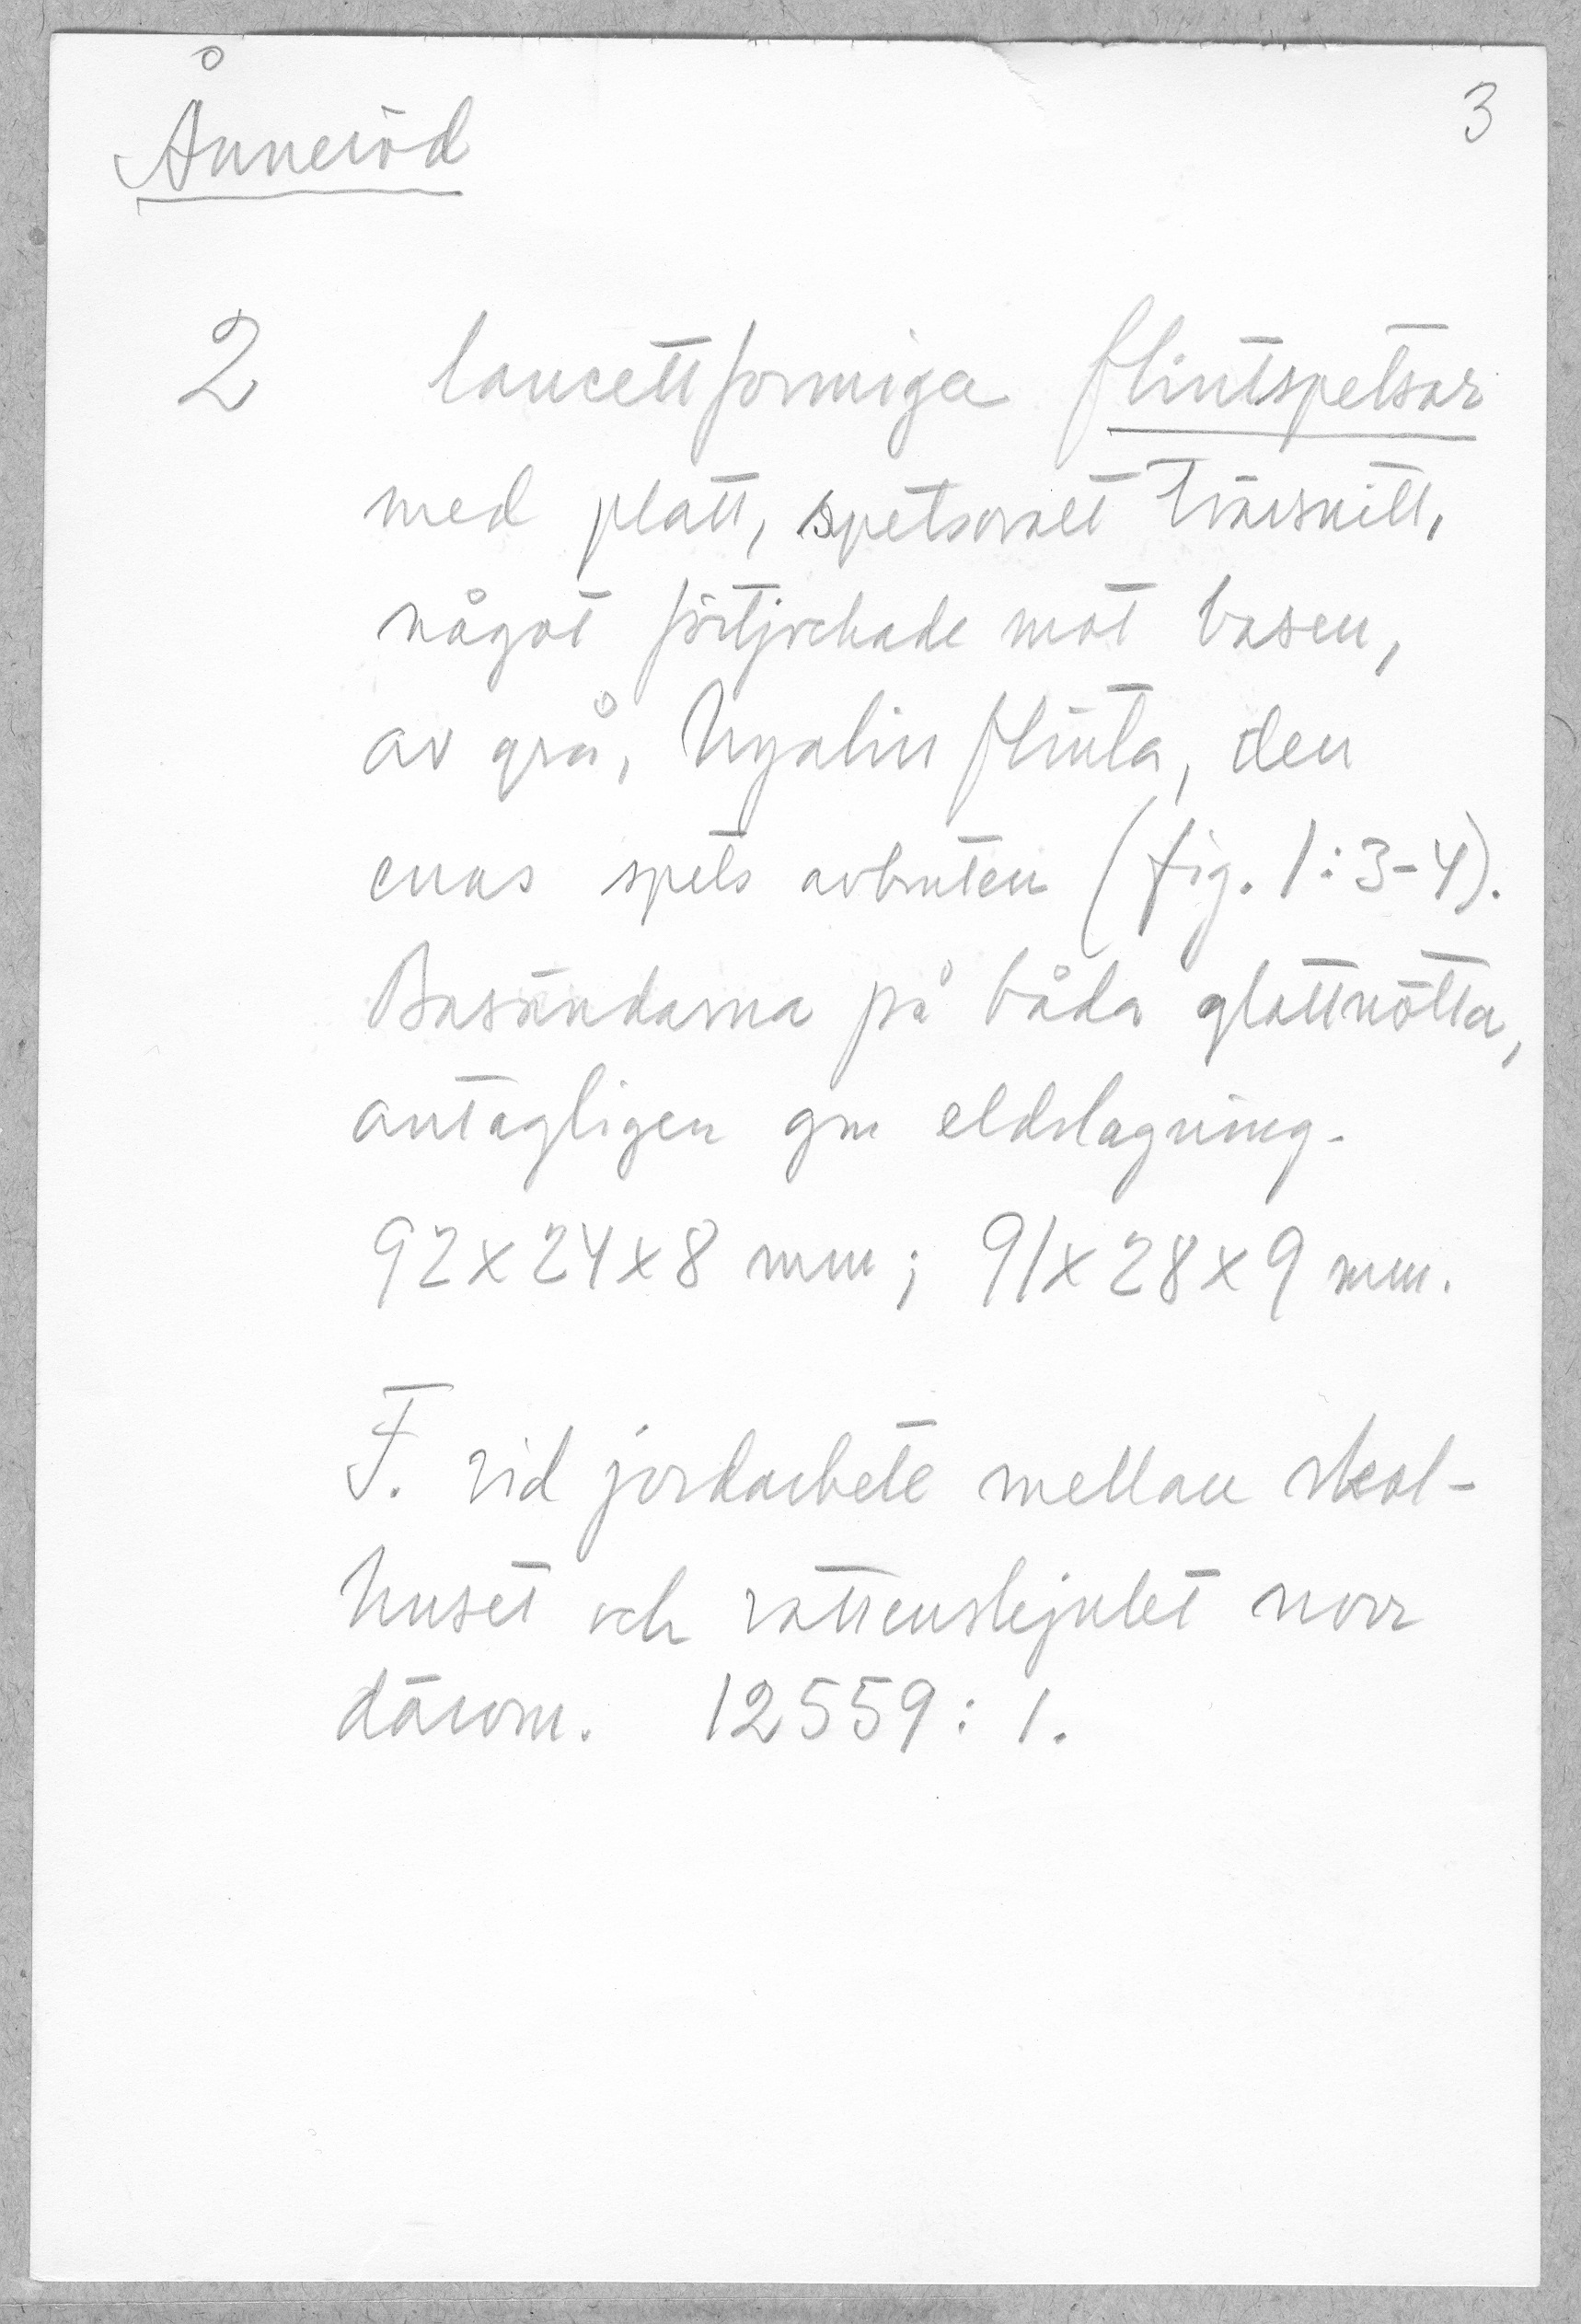 Ånneröd
3
2 lancettformiga flintspetsar
med platt, spetsovalt tvärsnitt,
något förtjockade mot basen,
av grå, hyalin flinta, den
enas spets avbruten (fig. 1:3-4).
Basändarna på båda glattnötta,
antagligen gm eldslagning.
92x24x8 mm; 91x28x9 mm.
F. vid jordarbete mellan skol-
huset och vattenskjulet norr
därom. 12559:1.